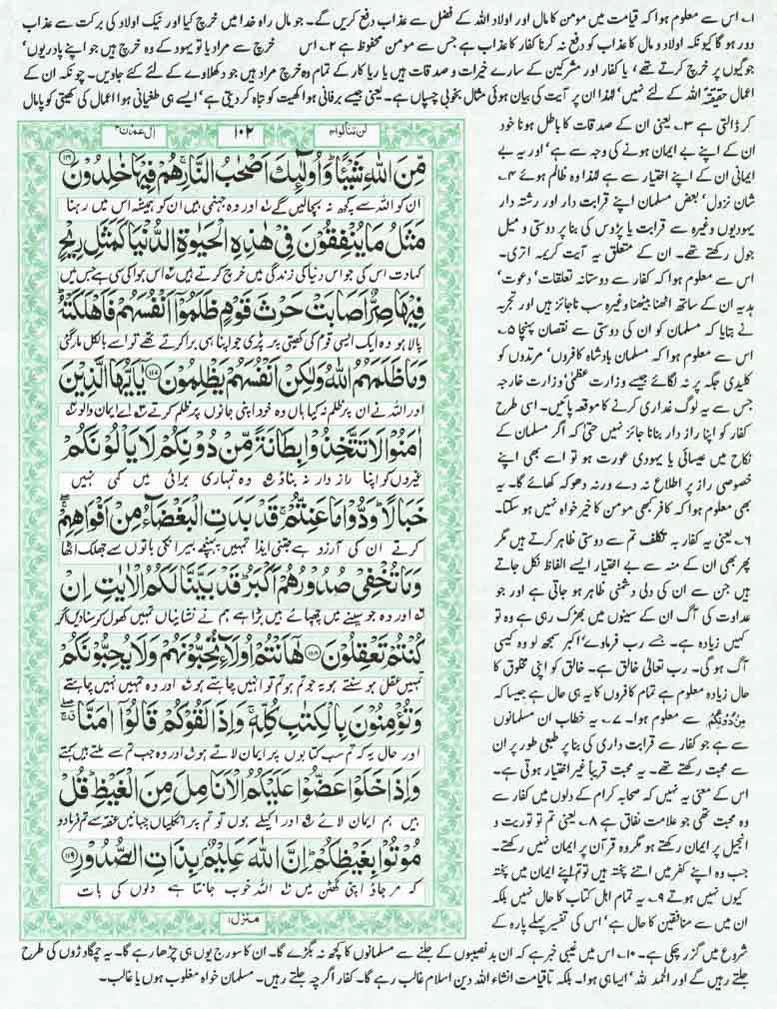 ۱۔ اس سے معلوم ہوا کہ قیامت میں مومن کا مال اور اولاد اللہ کے فضل سے عذاب دفع کریں گے۔ جو مال راہ خدا میں خرچ کیا اور نیک اولاد کی برکت سے عذاب
دور ہو گا کیونکہ اولاد و مال کا عذاب کو دفع نہ کرنا کفار کا عذاب ہے جس سے مومن محفوظ ہے ۲۔ اس خرچ سے مراد یا تو یہود کے وہ خرچ ہیں جو اپنے پادریوں'
جوگیوں پر خرچ کرتے تھے، یا کفار اور مشرکین کے سارے خیرات و صدقات ہیں یا ریا کار کے تمام وہ خرچ مراد ہیں جو دکھلاوے کے لئے کئے جاویں۔ چونکہ ان کے
اعمال حقیقۃً اللہ کے لئے نہیں' لہٰذا ان پر آیت کی بیان ہوئی مثال بخوبی چسپاں ہے۔ یعنی جیسے برفانی ہوا کھیت کو تباہ کر دیتی ہے' ایسے ہی طغیانی ہوا اعمال کی کھیتی کو پامال
کر ڈالتی ہے ۳۔ یعنی ان کے صدقات کا باطل ہونا خود
ان کے اپنے بے ایمان ہونے کی وجہ سے ہے' اور یہ بے
ایمانی ان کے اپنے اختیار سے ہے لہٰذا وہ ظالم ہوئے ۴۔
شان نزول' بعض مسلمان اپنے قرابت دار اور رشتہ دار
یہودیوں وغیرہ سے قرابت یا پڑوس کی بنا پر دوستی و میل
جول رکھتے تھے۔ ان کے متعلق یہ آیت کریمہ اتری۔
اس سے معلوم ہوا کہ کفار سے دوستانہ تعلقات' دعوت'
ہدیہ ان کے ساتھ اٹھنا بیٹھنا وغیرہ سب ناجائز ہیں اور تجربہ
نے بتایا کہ مسلمان کو ان کی دوستی سے نقصان پہنچا ۵۔
اس سے معلوم ہوا کہ مسلمان بادشاہ کافروں' مرتدوں کو
کلیدی جگہ پر نہ لگائے جیسے وزارت عظمیٰ' وزارت خارجہ
جس سے یہ لوگ غداری کرنے کا موقعہ پائیں۔ اسی طرح
کفار کو اپنا راز دار بنانا جائز نہیں حتیٰ کہ اگر مسلمان کے
نکاح میں عیسائی یا یہودی عورت ہو تو اسے بھی اپنے
خصوصی راز پر اطلاع نہ دے ورنہ دھوکہ کھائے گا۔ یہ
بھی معلوم ہوا کہ کافر کبھی مومن کا خیر خواہ نہیں ہو سکتا۔
۶۔ یعنی یہ کفار بہ تکلف تم سے دوستی ظاہر کرتے ہیں مگر
پھر بھی ان کے منہ سے بے اختیار ایسے الفاظ نکل جاتے
ہیں جن سے ان کی دلی دشمنی ظاہر ہو جاتی ہے اور جو
عداوت کی آگ ان کے سینوں میں بھڑک رہی ہے وہ تو
کہیں زیادہ ہے۔ جسے رب فرماوے' اکبر سمجھ لو وہ کیسی
آگ ہو گی۔ رب تعالیٰ خالق ہے۔ خالق کو اپنی مخلوق کا
حال زیادہ معلوم ہے تمام کافروں کا یہ ہی حال ہے جیسا کہ
مِنْ دُوْنِكُمْ سے معلوم ہوا۔ ۷۔ یہ خطاب ان مسلمانوں
سے ہے جو کفار سے قرابت داری کی بنا پر طبعی طور پر ان
سے محبت رکھتے تھے۔ یہ محبت قریباً غیر اختیار ہوتی ہے۔
اس کے معنی یہ نہیں کہ صحابہ کرام کے دلوں میں کفار سے
وہ محبت تھی جو علامت نفاق ہے ۸۔ یعنی تم تو توریت و
انجیل پر ایمان رکھتے ہو مگر وہ قرآن پر ایمان نہیں رکھتے۔
جب وہ اپنے کفر میں اتنے پختہ ہیں تو تم اپنے ایمان میں پختہ
کیوں نہیں ہوتے ۹۔ یہ تمام اہل کتاب کا حال نہیں بلکہ
ان میں سے منافقین کا حال ہے' اس کی تفسیر پہلے پارہ کے
شروع میں گزر چکی ہے۔ ۱۰۔ اس میں غیبی خبر ہے کہ ان بدنصیبوں کے جلنے سے مسلمانوں کا کچھ نہ بگڑے گا۔ ان کا سورج یوں ہی چڑھا رہے گا۔ یہ چمگادڑوں کی طرح
جلتے رہیں گے اور الحمد للہ' ایسا ہی ہوا۔ بلکہ تا قیامت انشاء اللہ دین اسلام غالب رہے گا۔ کفار اگرچہ جلتے رہیں۔ مسلمان خواہ مغلوب ہوں یا غالب۔
لن تنالوا۴ ۱۰۲ اٰل عمرٰن۳
مِّنَ اللّٰهِ شَيْـًٔا ؕ وَاُولٰٓئِكَ اَصْحٰبُ النَّارِ ۚ هُمْ فِيْهَا خٰلِدُوْنَ ﴿۱۱۶﴾
ان کو اللہ سے کچھ نہ بچالیں گے اور وہ جہنمی ہیں ان کو ہمیشہ اس میں رہنا
مَثَلُ مَا يُنْفِقُوْنَ فِيْ هٰذِهِ الْحَيٰوةِ الدُّنْيَا كَمَثَلِ رِيْحٍ
کہاوت اس کی جو اس دنیا کی زندگی میں خرچ کرتے ہیں اس ہوا کی سی ہے جس میں
فِيْهَا صِرٌّ اَصَابَتْ حَرْثَ قَوْمٍ ظَلَمُوْۤا اَنْفُسَهُمْ فَاَهْلَكَتْهُ ؕ
پالا ہو وہ ایک ایسی قوم کی کھیتی پر پڑی جو اپنا ہی برا کرتے تھے تو اسے بالکل مار گئی
وَمَا ظَلَمَهُمُ اللّٰهُ وَلٰكِنْ اَنْفُسَهُمْ يَظْلِمُوْنَ ﴿۱۱۷﴾ يٰۤاَيُّهَا الَّذِيْنَ
اور اللہ نے ان پر ظلم نہ کیا ہاں وہ خود اپنی جانوں پر ظلم کرتے تھے اے ایمان والو
اٰمَنُوْا لَا تَتَّخِذُوْا بِطَانَةً مِّنْ دُوْنِكُمْ لَا يَاْلُوْنَكُمْ
غیروں کو اپنا راز دار نہ بناؤ وہ تمہاری برائی میں کمی نہیں
خَبَالًا ؕ وَدُّوْا مَا عَنِتُّمْ ۚ قَدْ بَدَتِ الْبَغْضَآءُ مِنْ اَفْوَاهِهِمْ ۖۚ
کرتے ان کی آرزو ہے جتنی ایذا تمہیں پہنچے بیر ان کی باتوں سے جھلک اٹھا
وَمَا تُخْفِيْ صُدُوْرُهُمْ اَكْبَرُ ؕ قَدْ بَيَّنَّا لَكُمُ الْاٰيٰتِ اِنْ
اور وہ جو سینے میں چھپائے ہیں بڑا ہے ہم نے نشانیاں تمہیں کھول کر سنا دیں اگر
كُنْتُمْ تَعْقِلُوْنَ ﴿۱۱۸﴾ هٰۤاَنْتُمْ اُولَآءِ تُحِبُّوْنَهُمْ وَلَا يُحِبُّوْنَكُمْ
تمہیں عقل ہو سنتے ہو یہ جو تم ہو تم تو انہیں چاہتے ہو اور وہ تمہیں نہیں چاہتے
وَتُؤْمِنُوْنَ بِالْكِتٰبِ كُلِّهٖ ۚ وَاِذَا لَقُوْكُمْ قَالُوْۤا اٰمَنَّا ۖۚ
اور حال یہ کہ تم سب کتابوں پر ایمان لاتے ہو اور وہ جب تم سے ملتے ہیں کہتے
وَاِذَا خَلَوْا عَضُّوْا عَلَيْكُمُ الْاَنَامِلَ مِنَ الْغَيْظِ ؕ قُلْ
ہیں ہم ایمان لائے اور اکیلے ہوں تو تم پر انگلیاں چبائیں غصہ سے تم فرما دو
مُوْتُوْا بِغَيْظِكُمْ ؕ اِنَّ اللّٰهَ عَلِيْمٌۢ بِذَاتِ الصُّدُوْرِ ﴿۱۱۹﴾
کہ مر جاؤ اپنی گھٹن میں اللہ خوب جانتا ہے دلوں کی بات
منزل۱